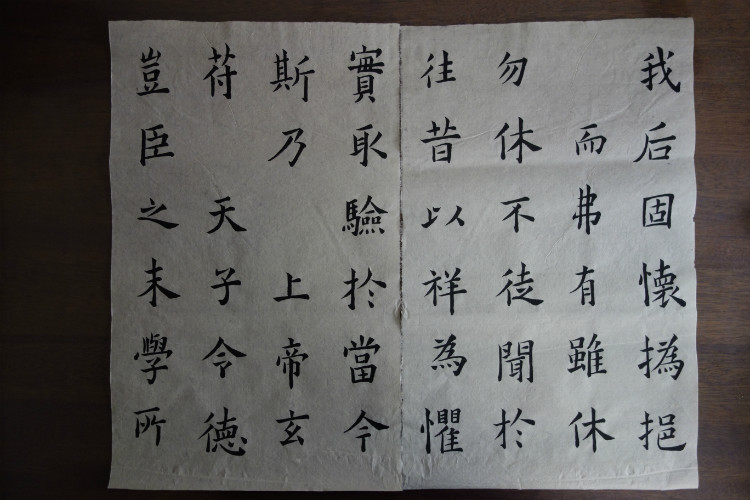 我后固懷撝挹
而弗有雖休
勿休不徒聞於
往昔以祥為懼
實取驗於當今
斯乃上帝玄
符天子令德
豈臣之末學所